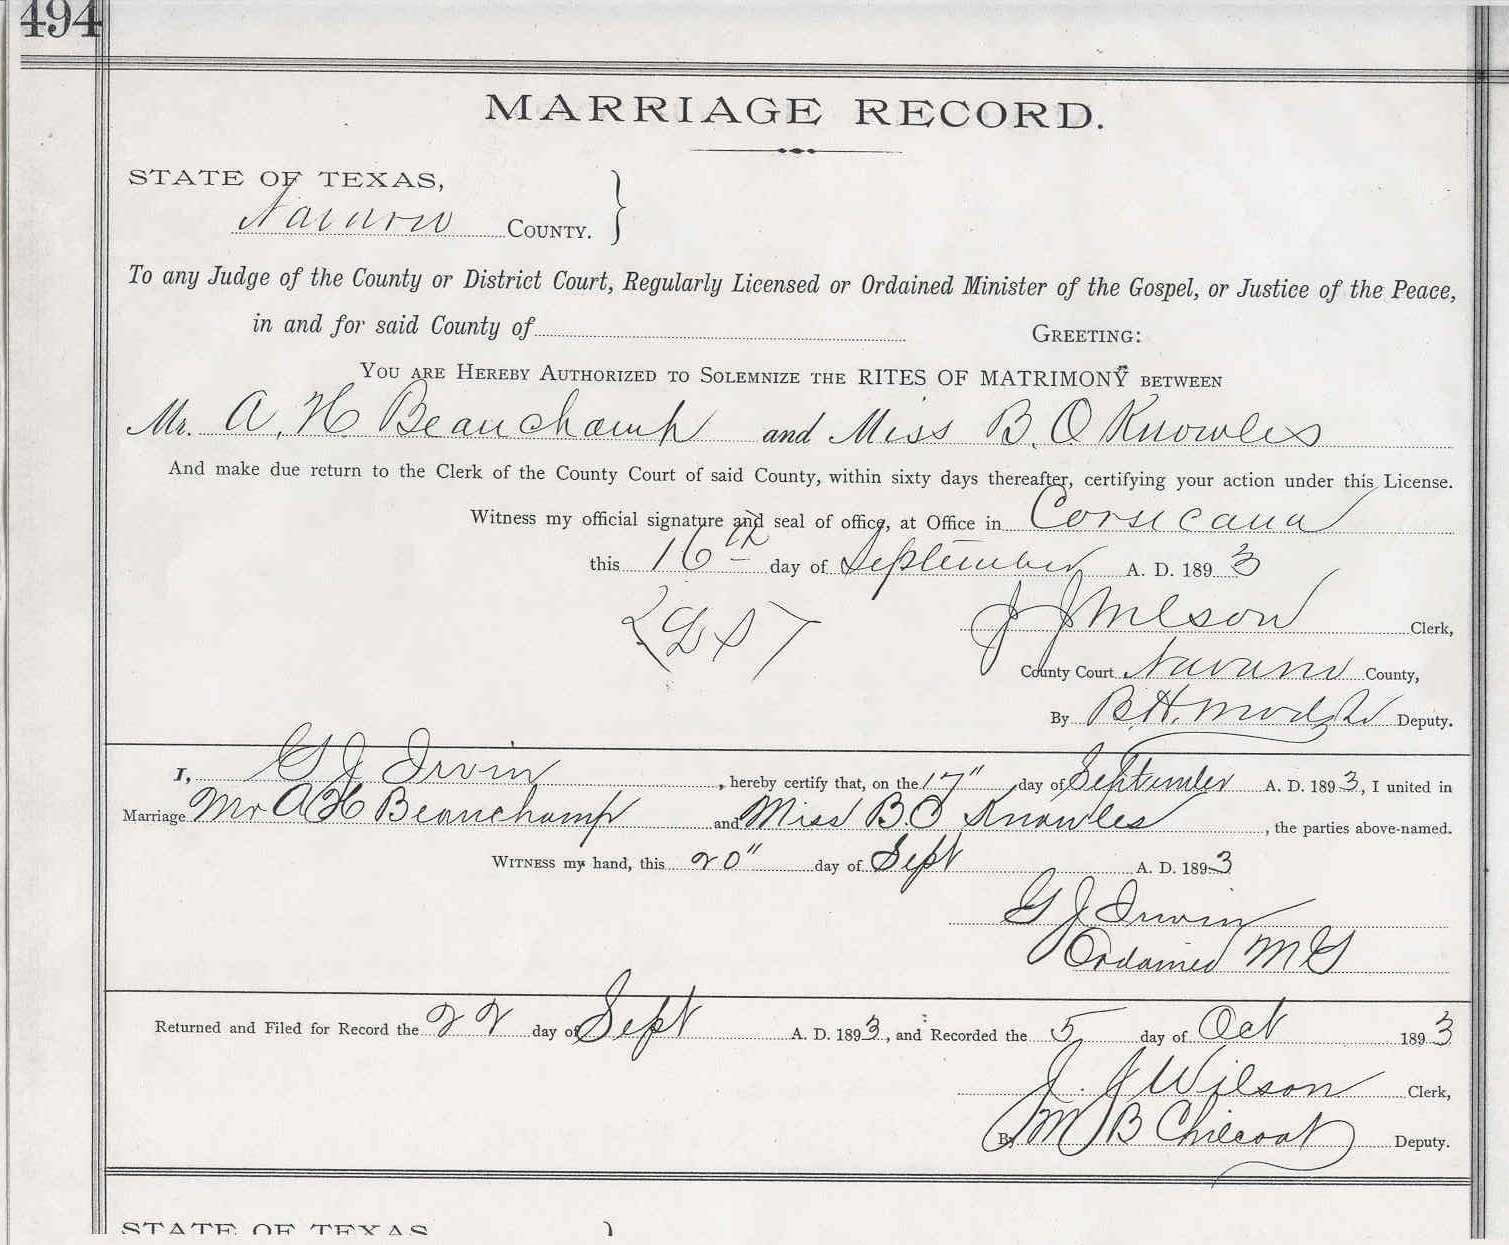 494
MARRIAGE RECORD.
STATE OF TEXAS,
Navarro COUNTY. }
To any Judge of the County or District Court, Regularly Licensed or Ordained Minister of the Gospel, or Justice of the Peace,
in and for said County of GREETING:
YOU ARE HEREBY AUTHORIZED TO SOLEMNIZE THE RITES OF MATRIMONY BETWEEN
Mr. A. H. Beauchamp and Miss B. O Knowles
And make due return to the Clerk of the County Court of said County, within sixty days thereafter, certifying your action under this License.
Witness my official signature and seal of office, at Office in Corsicana
this 16th day of September A. D. 1893
{L S} J J Wilson Clerk,
County Court Navarro County,
By B. H. Deputy.
I, G J Irvin, hereby certify that, on the 17" day of September A. D. 1893, I united in
Marriage Mr A H Beauchamp and Miss B O Knowles, the parties above-named.
WITNESS my hand, this 20" day of Sept A. D. 1893
G J Irvin
Ordained M G
Returned and Filed for Record the 22 day of Sept A. D. 1893, and Recorded the 5 day of Oct 1893
J. J Wilson Clerk,
By M B Chilcoat Deputy.
STATE OF TEXAS }